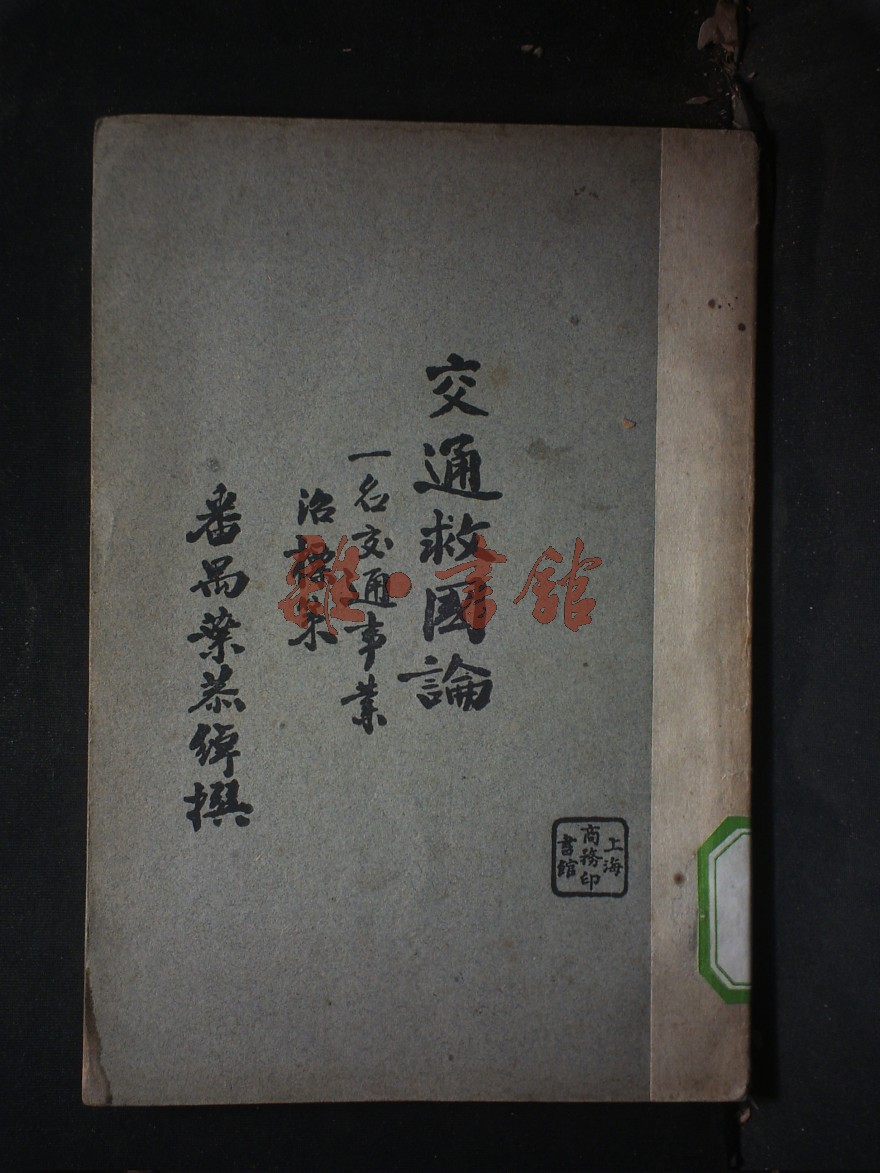 交通救國論
一名交通事業
治標策
番禺葉恭綽撰
上海
商務印
書館
雜·書館